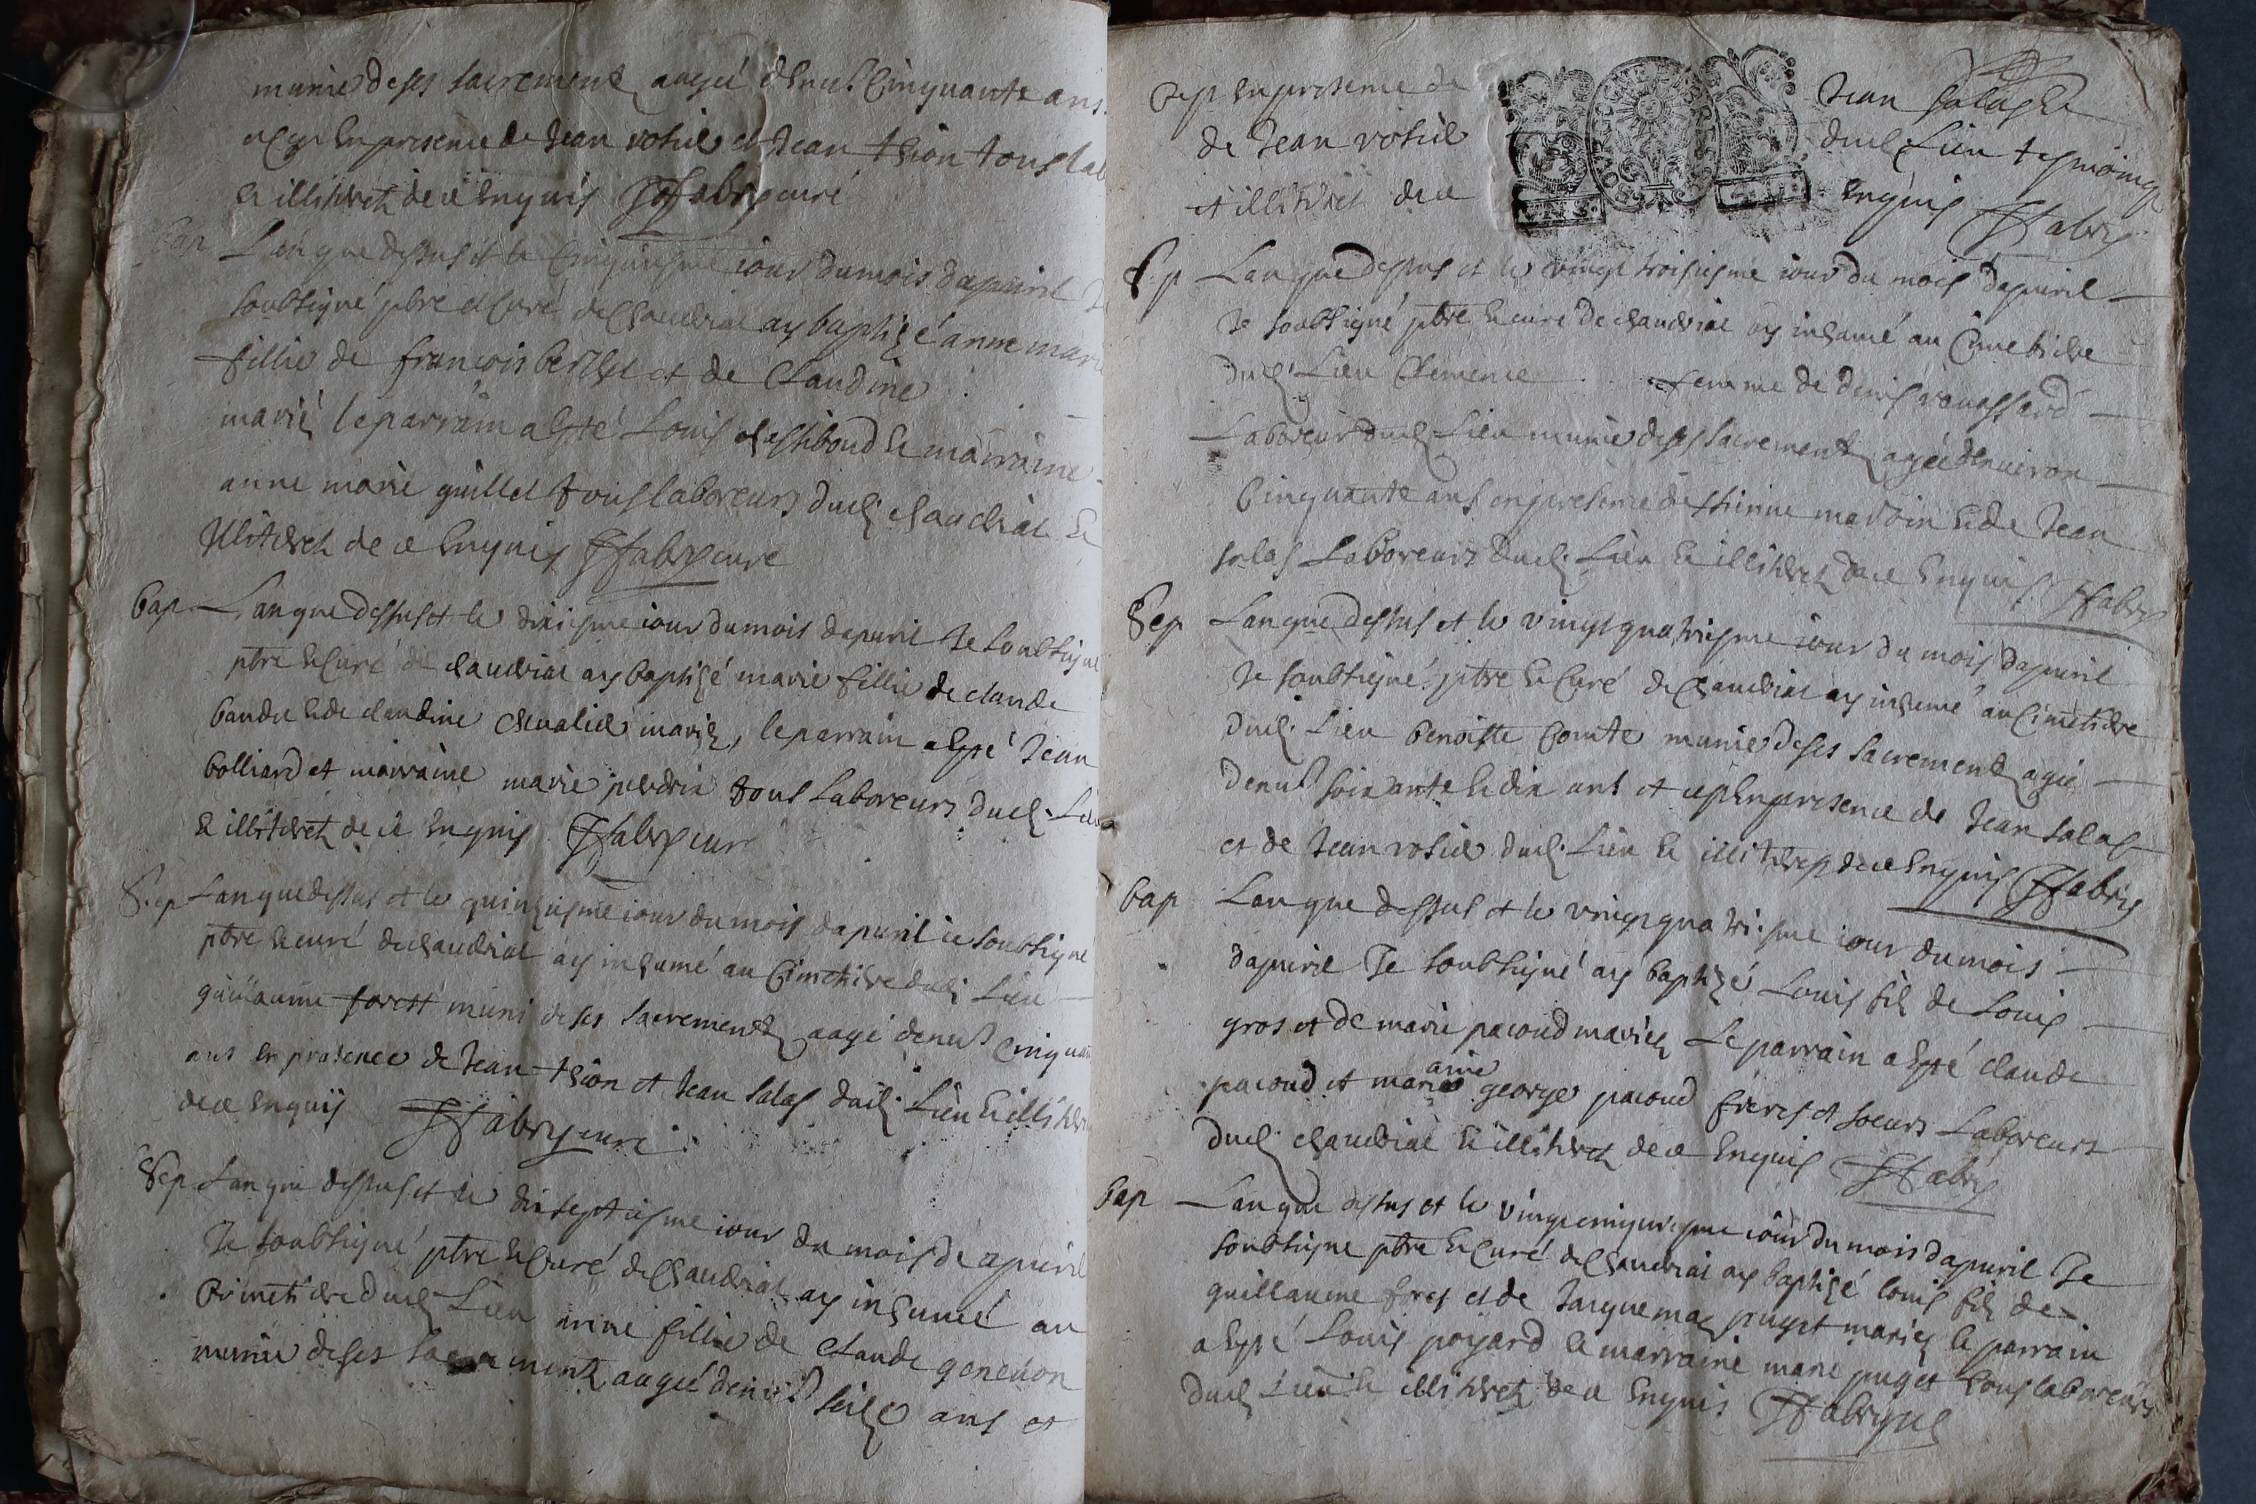 munie de ses sacrement aagée denv. Cinquante ans
et ce en presence de Jean rosier et Jean thion tous lab
& illiteretz de ce enquis JFabry curé
Bap L'an que dessus et le Cinquiesme iour du mois d'apuril Je
soubsigné pbre et Curé de chaudviat ay baptizé anne mari
fillie de françois berthet et de Claudine
mariéz le parrain a esté Louis & marraine
anne marie guillet tous laboreurs dud. chaudviat &
illiteretz de ce enquis JFabry curé
Bap L'an que dessus et le dixiesme iour du mois d'apuril Je soubsigné
pbre & Curé de chaudviat ay baptizé marie fillie de claude
bandu & de claudine chevalier mariéz, le parrain a esté Jean
bolliard et marraine marie perdrix tous Laboreurs dud. Lieu
& illiteretz de ce enquis JFabry curé
Sep L'an que dessus et le quinziesme iour du mois d'apuril ie soubsigné
pbre & curé de chaudviat ay inhumé au Cimetiere dud. Lieu
guillaume forest muni de ses sacrementz aagé denv. Cinquante
ans en presence de Jean thion et Jean salas dud. Lieu & illiter
de ce enquis JFabry curé
Sep L'an que dessus et le dix septiesme iour du mois de apuril
Je soubsigné pbre & Curé de chaudviat ay inhumé au
Cimetiere dud. Lieu fillie de claude genevon
munie de ses sacrementz aagée denv. seize ans et
ce en presence de Jean salas &
de Jean rosier dud. Lieu tesmoings
et illiteretz de ce enquis JFabry
Sep L'an que dessus et le vingt troisiesme iour du mois d'apuril
Je soubsigné pbre & curé de chaudviat ay inhumé au Cimetiere
dud. Lieu Clemence femme de denis ravassard
Laboreur dud. Lieu munie de ses sacrementz agée denviron
Cinquante ans en presence de thienne mardoin & de Jean
salas Laboreurs dud. Lieu & illiteretz de ce enquis JFabry
Sep L'an que dessus et le vingt quatriesme iour du mois d'apuril
Je soubsigné pbre & Curé de chaudviat ay inhumé au Cimetiere
dud. Lieu benoitte Comte munie de ses sacrementz agée
denv. soixante & dix ans et ce en presence de Jean salas
et de Jean rosier dud. Lieu & illiteretz de ce enquis JFabry
bap L'an que dessus et le vingt quatriesme iour du mois
d'apuril Je soubsigné ay baptizé Louis filz de Louis
gros et de marie pacoud mariéz Le parrain a esté claude
pacoud et marraine george pacoud freres et soeurs Laboreurs
dud. chaudviat & illiteretz de ce enquis JFabry
bap L'an que dessus et le vingt cinquiesme iour du mois d'apuril Je
soubsigné pbre & Curé de chaudviat ay baptizé louis filz de
guillaume forest et de Jacquemaz puget mariéz le parrain
a esté Louis poyard & marraine marie puget tous laboreurs
dud. Lieu & illiteretz de ce enquis JFabry